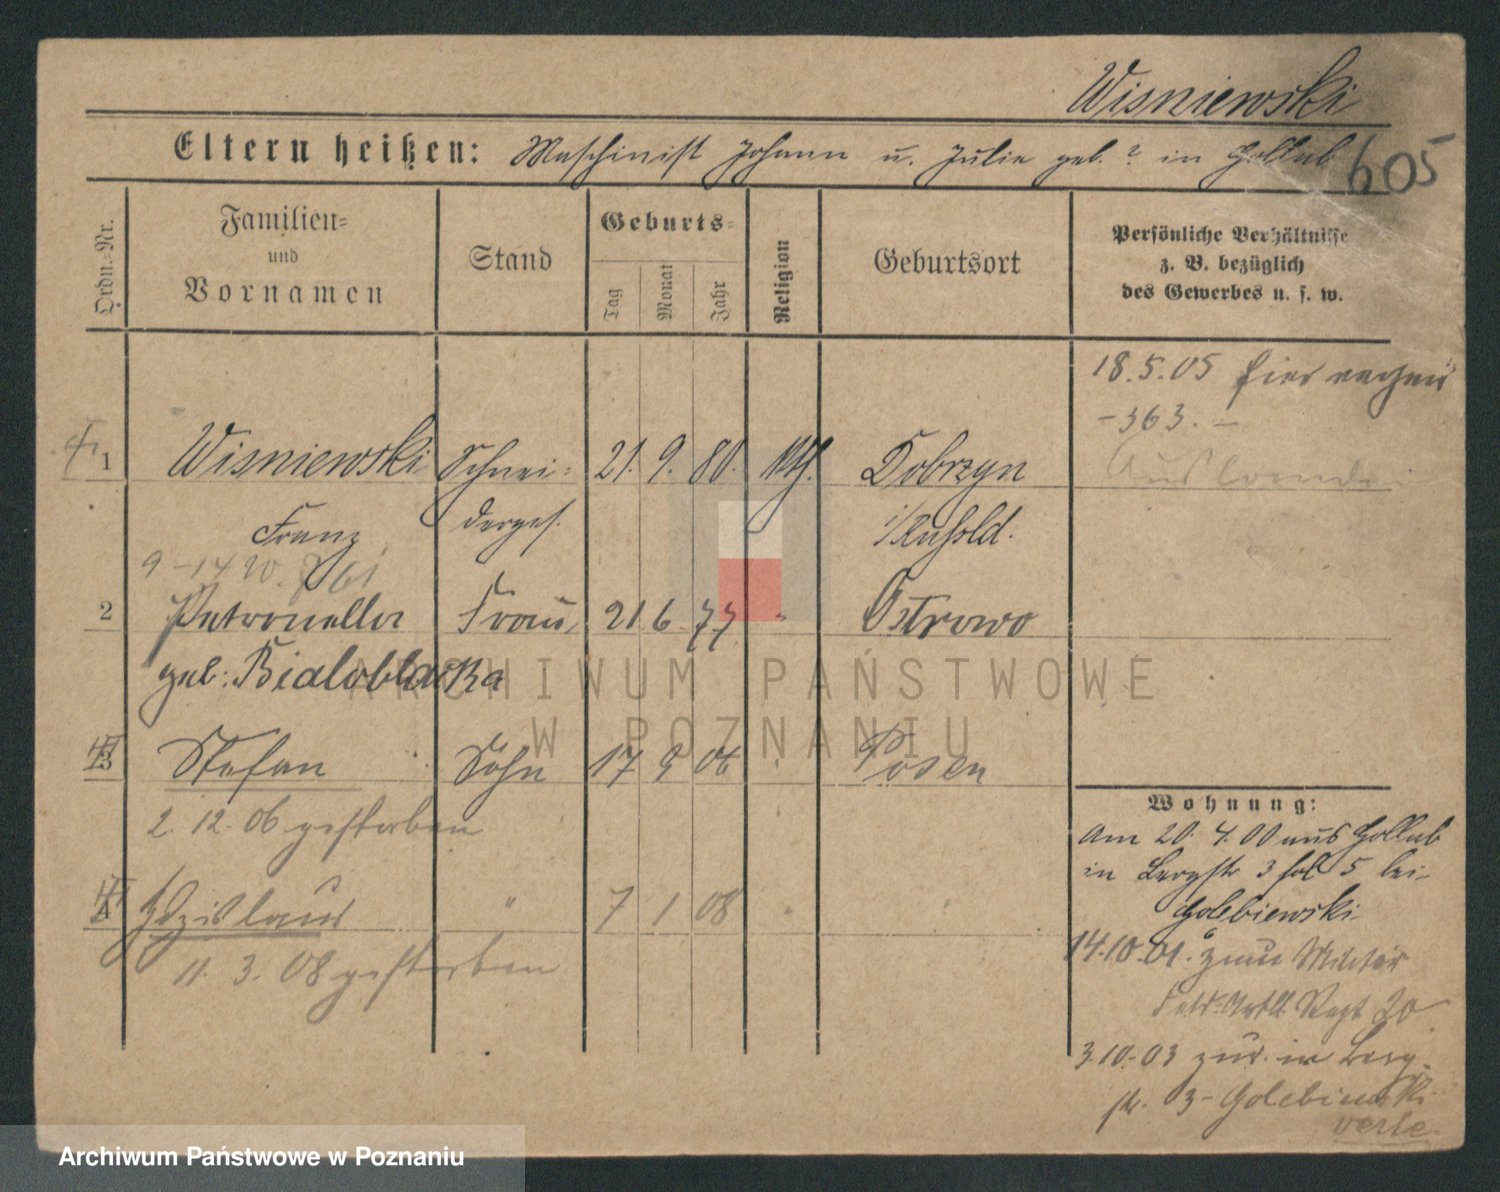 Wisniewski
Eltern heißen: Maschinist Johann u. Julie geb. ? in Gollub
605
Ordn.-Nr.
Familien-
und
Vornamen
Stand
Geburts-
Tag
Monat
Jahr
Religion
Geburtsort
Persönliche Verhältnisse
z. B. bezüglich
des Gewerbes u. s. w.
18.5.05 hier
-363.-
1 Wisniewski Schnei- 21. 9. 80. kth. Dobrzyn
Franz derges. i/Rußld.
9-14 W.
2 Petronella Frau 21 6 77 " Ostrowo
geb: Bialoblocka
3 Stefan Sohn 17 9 06 Posen
2. 12. 06 gestorben
4 Zdzislaus " 7 1 08 "
11. 3. 08 gestorben
Wohnung:
Am 20. 4. 00 aus Gollub
in Bergstr 3 bei
Golebiewski
14.10.01. zum Militär
Feld-Artl. Regt 20
3.10.03 zur. in Berg-
str. 3 - Golebiewski
verte.
ARCHIWUM PAŃSTWOWE
W POZNANIU
Archiwum Państwowe w Poznaniu